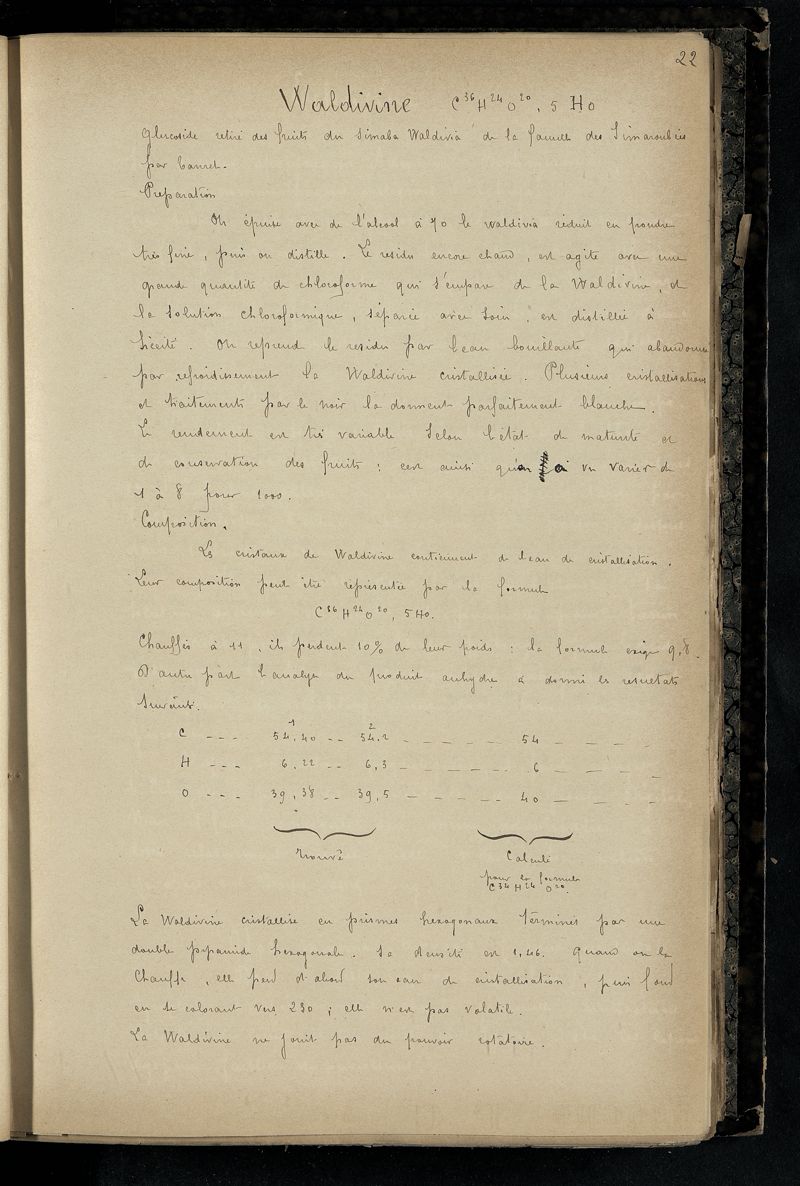 22
Waldivine C³⁶H²⁴O²⁰, 5 Ho
Glucoside retiré des fruits du Simaba Waldivia de la famille des Simaroubées
par Tanret.
Preparation
On épuise avec de l'alcool à 70 le waldivia réduit en poudre
très fine, puis on distille. Le residu encore chaud, est agité avec une
grande quantité de chloroforme qui s'empare de la Waldivine, et
la solution chloroformique, séparée avec soin, est distillée à
siccité. On reprend le residu par l'eau bouillante qui abandonne
par refroidissement la Waldivine cristallisée. Plusieurs cristallisations
et traitements par le noir la donnent parfaitement blanche.
Le rendement est très variable selon l'état de maturité et
de conservation des fruits : c'est ainsi qu'on a vu varier de
1 à 8 pour 1000.
Composition.
Les cristaux de Waldivine contiennent de l'eau de cristallisation.
Leur composition peut être représentée par la formule
C³⁶H²⁴O²⁰, 5Ho.
Chauffés à 11, ils perdent 10% de leur poids : la formule exige 9,8.
D'autre part l'analyse du produit anhydre a donné les resultats
suivants.
1 2
C - - - 54,40 - - 54.2 - - - - - - 54 - - - -
H - - - 6,22 - - 6,3 - - - - - - 6 - - - -
O - - - 39,38 - - 39,5 - - - - - - 40 - - - -
Trouvé Calculé
pour la formule
C³⁶H²⁴O²⁰.
La Waldivine cristallise en prismes hexagonaux terminés par une
double pyramide hexagonale. Sa densité est 1,46. Quand on la
chauffe, elle perd d'abord son eau de cristallisation, puis fond
en se colorant vers 230 ; elle n'est pas volatile.
La Waldivine ne jouit pas du pouvoir rotatoire.